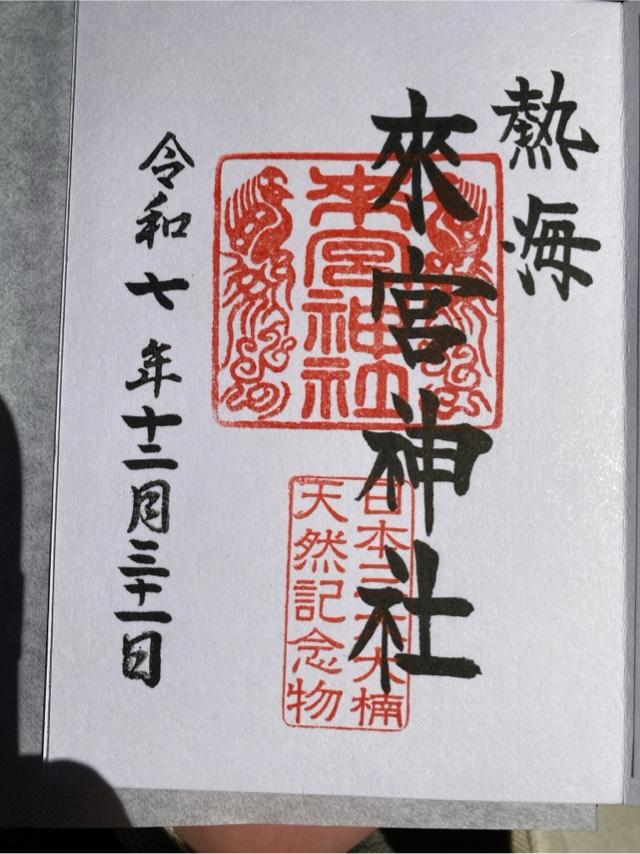 熱海
來宮神社
來宮神社
日本二 大楠
天然記念物
令和七年十二月三十一日